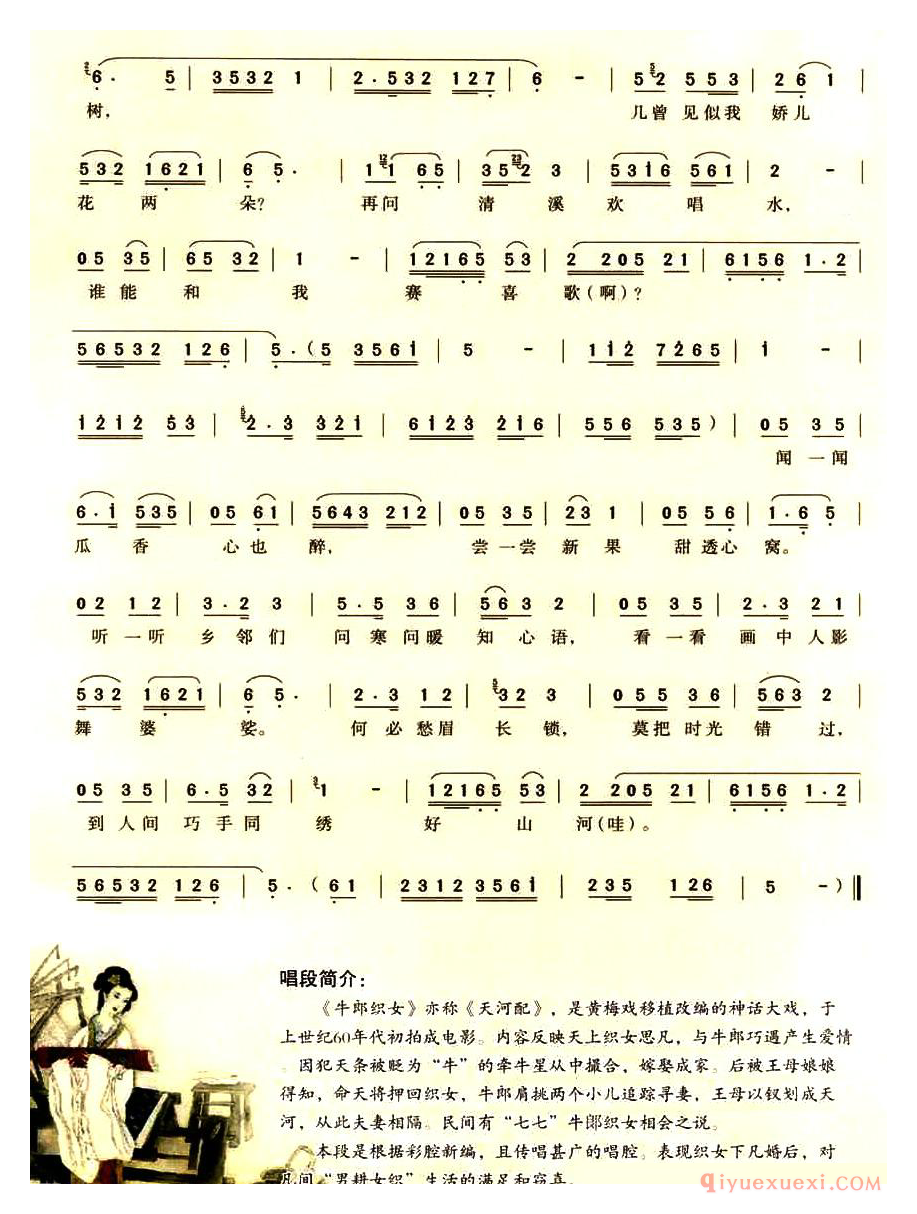 6 · 5 | 3532 1 | 2·532 127 | 6 - | 52 553 | 26 1 |
树， 几曾 见似我 娇儿
532 1621 | 6 5 · | 1 1 65 | 352 3 | 5316 561 | 2 - |
花 两 朵？ 再问 清 溪 欢 唱 水，
05 35 | 65 32 | 1 - | 12165 53 | 2 205 21 | 6156 1·2 |
谁能 和 我 赛 喜 歌（啊）？
56532 126 | 5 ·（5 3561 | 5 - | 112 7265 | 1 - |
1212 53 | 2·3 321 | 6123 216 | 556 535 ）| 05 35 |
闻一闻
6·1 535 | 05 61 | 5643 212 | 05 35 | 23 1 | 05 56 | 1·6 5 |
瓜 香 心也 醉， 尝一尝 新果 甜透心 窝。
02 12 | 3·2 3 | 5·5 36 | 563 2 | 05 35 | 2·3 21 |
听一听 乡邻们 问寒问暖 知心语， 看一看 画中人影
532 1621 | 6 5 · | 2·3 12 | 32 3 | 05 36 | 563 2 |
舞 婆 娑。 何必愁眉 长锁， 莫把时光 错 过，
05 35 | 6·5 32 | 1 - | 12165 53 | 2 205 21 | 6156 1·2 |
到人间 巧手同 绣 好 山 河（哇）。
56532 126 | 5 ·（61 | 2312 3561 | 235 126 | 5 - ）‖
唱段简介：
《牛郎织女》亦称《天河配》，是黄梅戏移植改编的神话大戏，于
上世纪60年代初拍成电影。内容反映天上织女思凡，与牛郎巧遇产生爱情
。因犯天条被贬为“牛”的牵牛星从中撮合，嫁娶成家。后被王母娘娘
得知，命天将押回织女，牛郎肩挑两个小儿追踪寻妻，王母以钗划成天
河，从此夫妻相隔。民间有“七七”牛郎织女相会之说。
本段是根据彩腔新编，且传唱甚广的唱腔。表现织女下凡婚后，对
凡间“男耕女织”生活的满足和窃喜。
qiyuexuexi.com